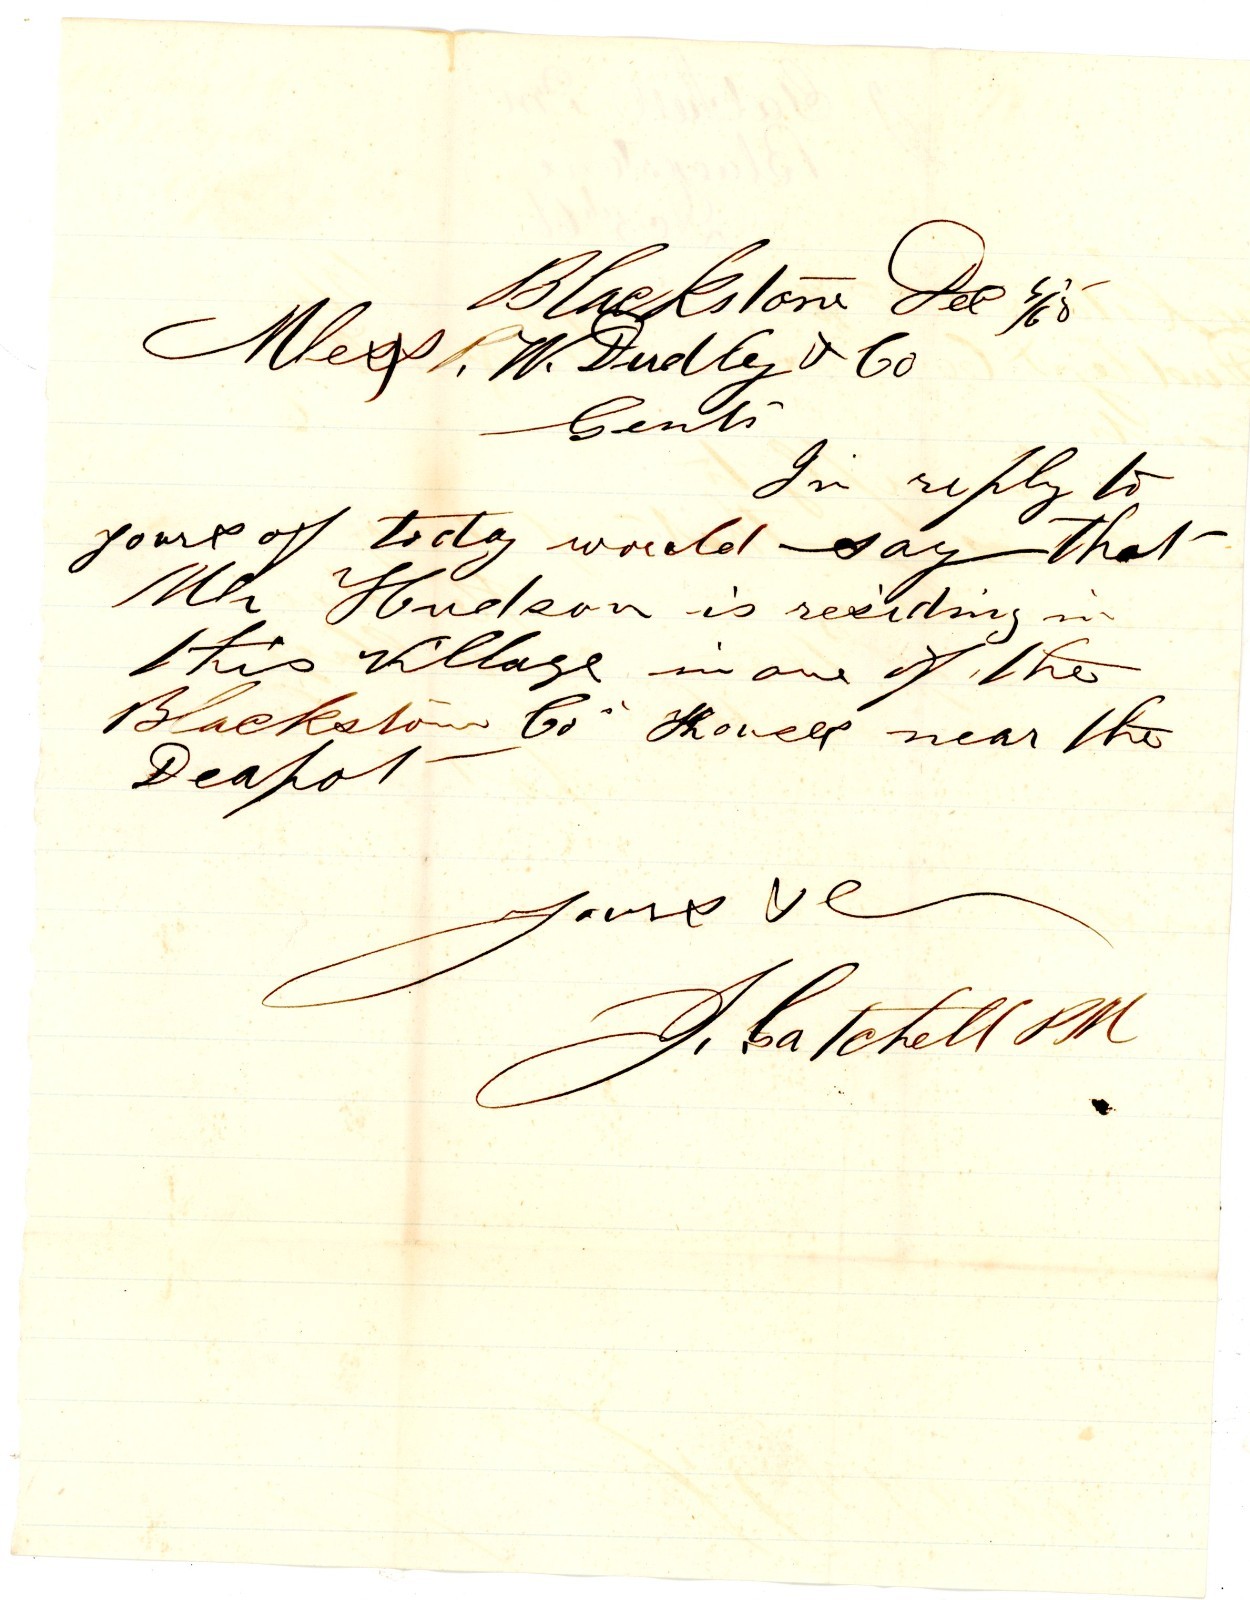 Blackstone Dec
Mess P. W. Dudley & Co
Gents
In reply to
yours of today would say that
Mr Hudson is residing in
this village in one of the
Blackstone Co" Houses near the
Deapot
yours &c
J. Gatchell PM